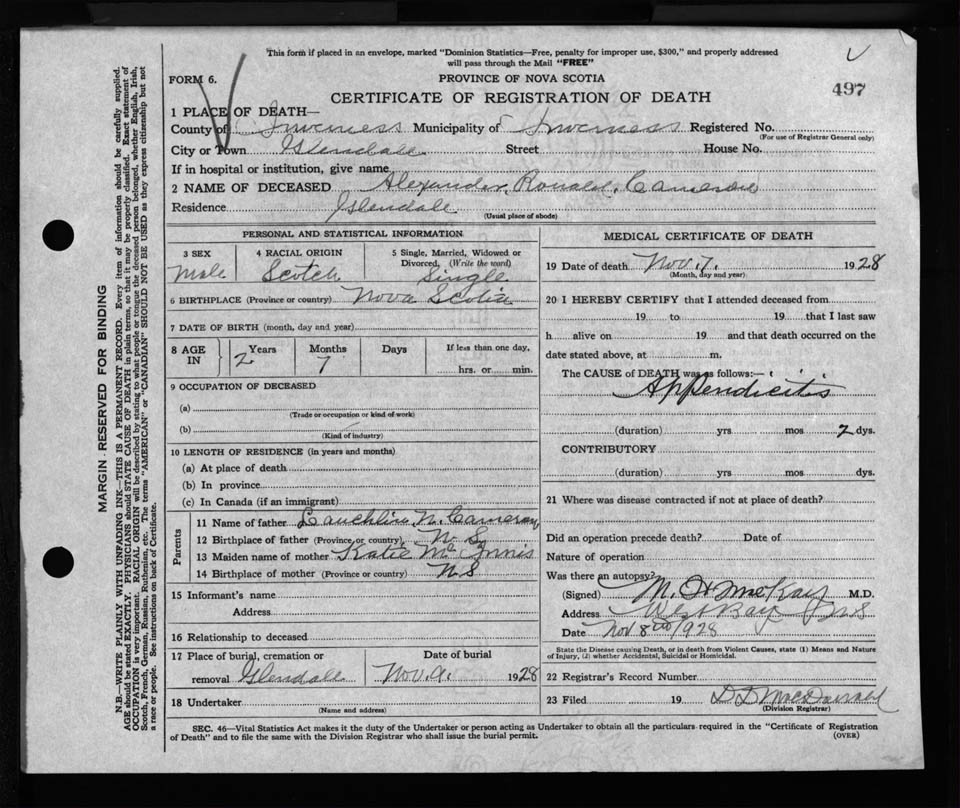 This form if placed in an envelope, marked "Dominion Statistics—Free, penalty for improper use, $300," and properly addressed
will pass through the Mail "FREE"
FORM 6.
PROVINCE OF NOVA SCOTIA
497
CERTIFICATE OF REGISTRATION OF DEATH
1 PLACE OF DEATH—
County of Inverness Municipality of Inverness Registered No.
(For use of Registrar General only)
City or Town Glendale Street House No.
If in hospital or institution, give name
2 NAME OF DECEASED Alexander Ronald Cameron
Residence Glendale
(Usual place of abode)
PERSONAL AND STATISTICAL INFORMATION
3 SEX 4 RACIAL ORIGIN 5 Single, Married, Widowed or
Divorced, (Write the word)
Male Scotch Single
6 BIRTHPLACE (Province or country) Nova Scotia
7 DATE OF BIRTH (month, day and year)
8 AGE IN Years Months Days If less than one day,
2 7 hrs. or min.
9 OCCUPATION OF DECEASED
(a)
(Trade or occupation or kind of work)
(b)
(Kind of industry)
10 LENGTH OF RESIDENCE (in years and months)
(a) At place of death
(b) In province
(c) In Canada (if an immigrant)
Parents
11 Name of father Lauchlin N. Cameron,
12 Birthplace of father (Province or country) N S
13 Maiden name of mother Katie Mc Innis
14 Birthplace of mother (Province or country) N S
15 Informant's name
Address
16 Relationship to deceased
17 Place of burial, cremation or Date of burial
removal Glendale Nov. 9. 1928
18 Undertaker
(Name and address)
MEDICAL CERTIFICATE OF DEATH
19 Date of death Nov. 7. 1928
(Month, day and year)
20 I HEREBY CERTIFY that I attended deceased from
19 to 19 that I last saw
h alive on 19 and that death occurred on the
date stated above, at m.
The CAUSE of DEATH was as follows:—
Appendicitis
(duration) yrs mos 2 dys.
CONTRIBUTORY
(duration) yrs. mos. dys.
21 Where was disease contracted if not at place of death?
Did an operation precede death? Date of
Nature of operation
Was there an autopsy?
(Signed) M. D McKay M.D.
Address West Bay N S
Date Nov 8th 1928
State the Disease causing Death, or in death from Violent Causes, state (1) Means and
Nature of Injury, (2) whether Accidental, Suicidal or Homicidal.
22 Registrar's Record Number
23 Filed 19 D D MacDonald
(Division Registrar)
SEC. 46—Vital Statistics Act makes it the duty of the Undertaker or person acting as Undertaker to obtain all the particulars required in the "Certificate of Registration
of Death" and to file the same with the Division Registrar who shall issue the burial permit.
(OVER)
MARGIN RESERVED FOR BINDING
N.B.—WRITE PLAINLY WITH UNFADING INK—THIS IS A PERMANENT RECORD. Every item of information should be carefully supplied.
AGE should be stated EXACTLY. PHYSICIANS should STATE CAUSE OF DEATH in plain terms, so that it may be properly classified. Exact statement of
OCCUPATION is very important. RACIAL ORIGIN will be described by stating to what people or tongue the deceased person belonged, whether English, Irish,
Scotch, French, German, Russian, Ruthenian, etc. The terms "AMERICAN" or "CANADIAN" SHOULD NOT BE USED as they express citizenship but not
a race or people. See instructions on back of Certificate.